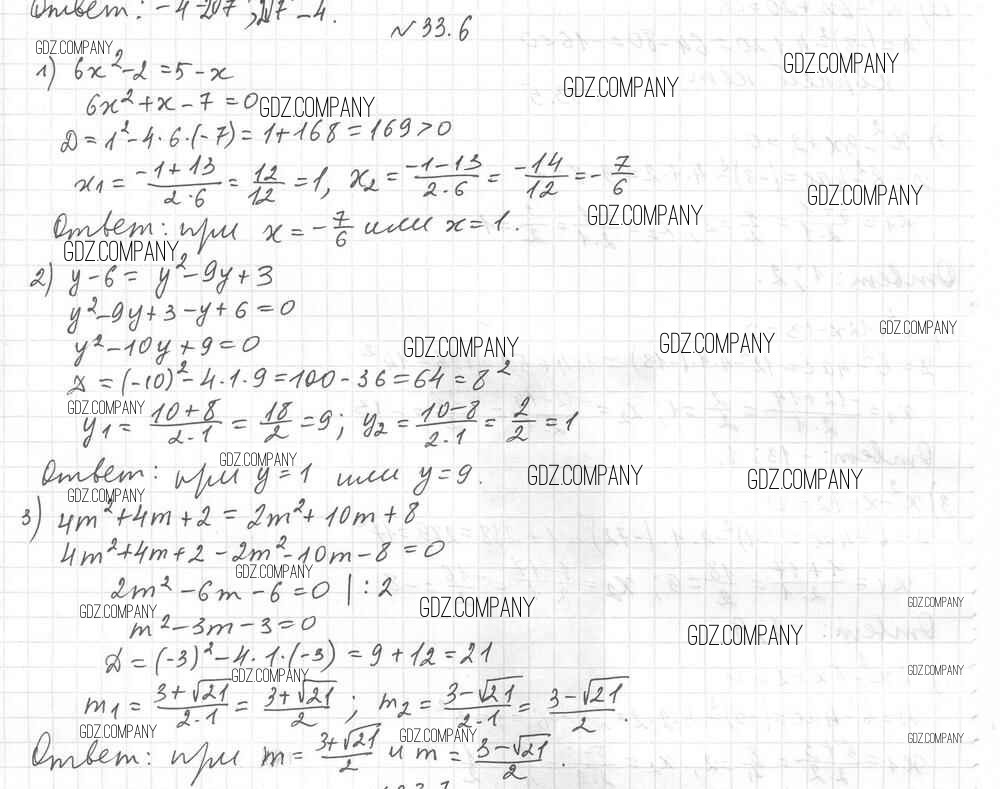 Ответ: -4-2√7; 2√7-4.
№33.6
GDZ.COMPANY
1) 6x²-2=5-x
GDZ.COMPANY
GDZ.COMPANY
6x²+x-7=0
GDZ.COMPANY
Д=1²-4·6·(-7)=1+168=169>0
x₁=(-1+13)/(2·6)=12/12=1, x₂=(-1-13)/(2·6)=-14/12=-7/6
GDZ.COMPANY
GDZ.COMPANY
Ответ: при x=-7/6 или x=1.
GDZ.COMPANY
2) y-6=y²-9y+3
y²-9y+3-y+6=0
GDZ.COMPANY
y²-10y+9=0
GDZ.COMPANY
GDZ.COMPANY
Д=(-10)²-4·1·9=100-36=64=8²
GDZ.COMPANY
y₁=(10+8)/(2·1)=18/2=9; y₂=(10-8)/(2·1)=2/2=1
GDZ.COMPANY
Ответ: при y=1 или y=9.
GDZ.COMPANY
GDZ.COMPANY
GDZ.COMPANY
3) 4m²+4m+2=2m²+10m+8
4m²+4m+2-2m²-10m-8=0
GDZ.COMPANY
2m²-6m-6=0 |:2
GDZ.COMPANY
GDZ.COMPANY
GDZ.COMPANY
m²-3m-3=0
GDZ.COMPANY
Д=(-3)²-4·1·(-3)=9+12=21
GDZ.COMPANY
GDZ.COMPANY
m₁=(3+√21)/(2·1)=(3+√21)/2; m₂=(3-√21)/(2·1)=(3-√21)/2.
GDZ.COMPANY
GDZ.COMPANY
GDZ.COMPANY
Ответ: при m=(3+√21)/2 и m=(3-√21)/2.